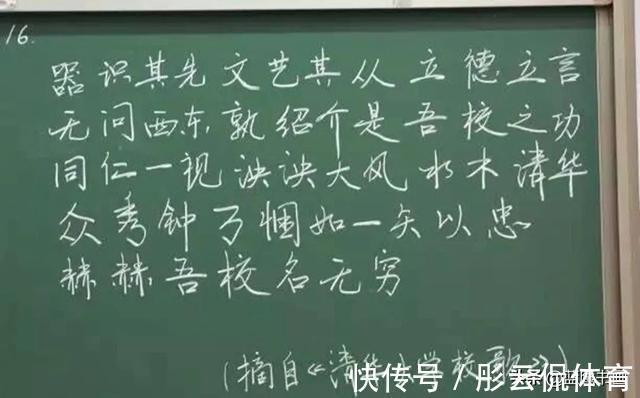 16.
器识其先文艺其从立德立言
无问西东孰绍介是吾校之功
同仁一视泱泱大风水木清华
众秀钟万悃如一矢以忠
赫赫吾校名无穷
(摘自《清华小学校歌》)
快传号 / 彤云侃体育